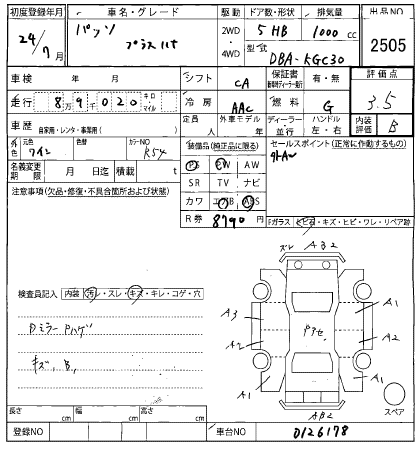 初度登録年月 車名・グレード 駆動 ドア数・形状 排気量 出品NO
24/7月 パッソ 2WD 5 HB 1000 cc 2505
プラスハナ 4WD 型式 DBA-KGC30
車検 年 月 シフト CA 保証書 有・無 評価点
走行 8万9千020 キロ・マイル 冷房 AAC 燃料 G 3.5
車歴 自家用・レンタ・事業用( ) 定員 人 外車モデル 年 ディーラー・並行 ハンドル 左・右 内装評価 B
外色 元色 ワイン 色替 カラーNO R54 装備品(純正品に限る) セールスポイント(正常に作動するもの)
PS PW AW 外AW
名義変更期限 月 日迄 積載 t SR TV ナビ
注意事項(欠品・修復・不具合箇所および状態) カワ エアB ABS
R券 8790円 Fガラス トビ石・キズ・ヒビ・ワレ・リペア跡
ズレ AB2
検査員記入 内装 汚レ・スレ・キズ・キレ・コゲ・穴
A3 A1
Dミラー Pハゲ Pヤセ
A2 A2
キズ, B,
A1 A1
スペア
AB2
長さ cm 幅 cm 高さ cm
登録NO 車台NO 0126178